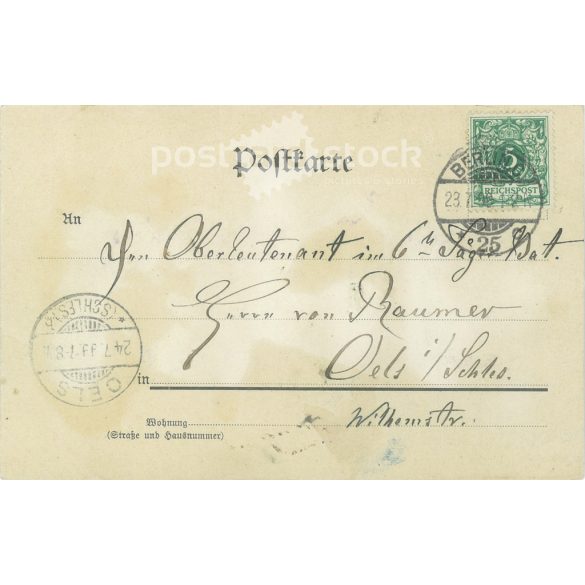 postbankstock
Postkarte
BERLIN
25
5
REICHSPOST
An
Den Oberleutenant im 6ten Jäger Bat.
Herrn von Raumer
in Oels i/Schles.
Wohnung Wilhemstr.
(Straße und Hausnummer)
(SCHLES)
24.7.99.7-8
OELS